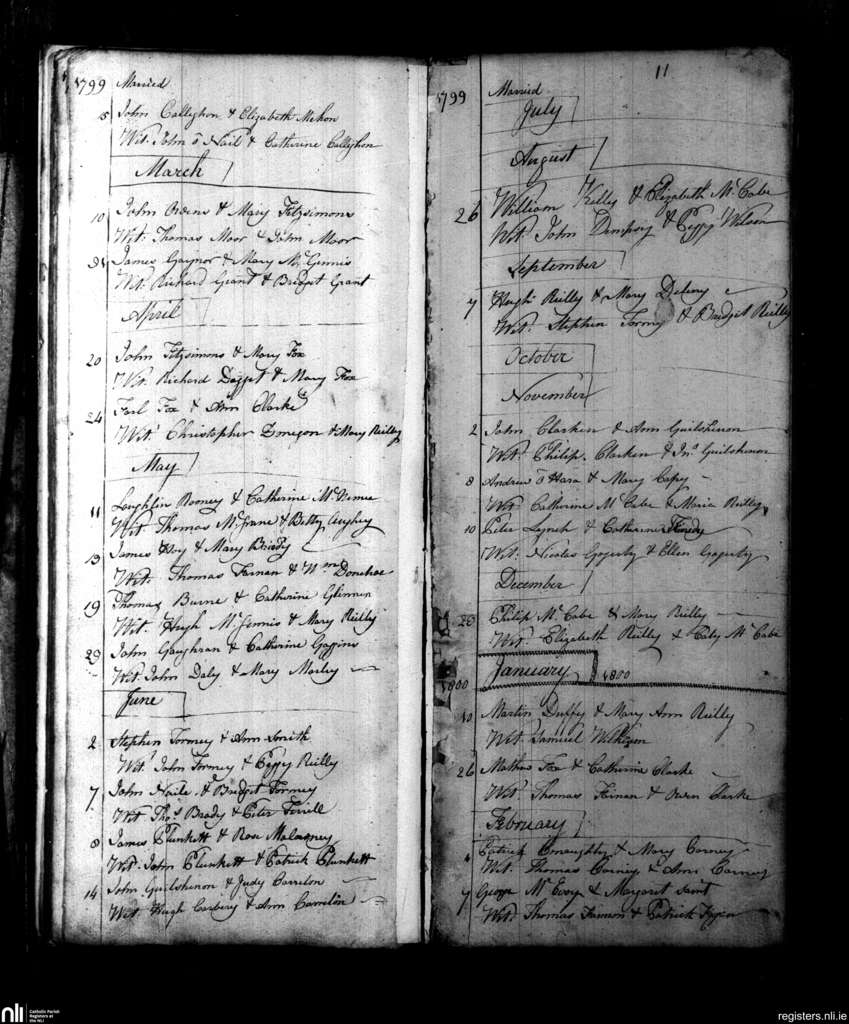 1799 Married
5 John Callyhon & Elizabeth Mehon
Wit. John ō Nail & Catherine Callyhon
March
10 John Owens & Mary Fitzsimons
Wit. Thomas Moor & John Moor
31 James Gaynor & Mary Mc Ginnis
Wit. Richard Grant & Bridget Grant
April
20 John Fitzsimons & Mary Fox
Wit. Richard & Mary Fox
24 Farl Fox & Ann Clarke
Wit. Christopher & Mary Reilly
May
11 Loughlin Rooney & Catherine
Wit Thomas & Betty
13 James Hoy & Mary Briody
Wit. Thomas Fernan & Wm Donehoe
19 Thomas Burne & Catherine
Wit. Hugh Mc Ginnis & Mary Reilly
29 John Gaughran & Catherine Goggins
Wit John Daly & Mary Morley
June
2 Stephen Tormey & Ann Smith
Wit. John Tormey & Peggy Reilly
7 John Naile & Bridget Tormey
Wit Thos Brady & Peter Ferrell
8 James Plunkett & Rose Maloney
Wit. John Plunkett & Patrick Plunkett
14 John Guilshenon & Judy Carrelon
Wit Hugh Carbery & Ann Carrelon
11
1799 Married
July
August
26 William Kelly & Elizabeth Mc Cabe
Wit John Dempsy & Peggy Wilson
September
7 Hugh Reilly & Mary
Wit. Stephen Tormy & Bridget Reilly
October
November
2 John Clarken & Ann Guilshenon
Wit. Philip Clarken & Jno. Guilshenon
8 Andrew ō Hara & Mary
Wit Catherine Mc Cabe & Maria Reilly
10 Peter Lynch & Catherine
Wit. Nicolas Gogerty & Ellen Gogerty
December
23 Philip Mc Cabe & Mary Reilly
Wit. Elizabeth Reilly & Mc Cabe
1800 January 1800
10 Martin Duffy & Mary Ann Reilly
Wit Samuel
26 Mathew Fox & Catherine Clarke
Wit. Thomas Fernan & Owen Clarke
February
4 Patrick Conaughty & Mary Carney
Wit. Thomas Carney & Ann Carney
7 George Mc Evoy & Margaret
Wit. Thomas & Patrick
nli Catholic Parish
Registers at
the NLI
registers.nli.ie